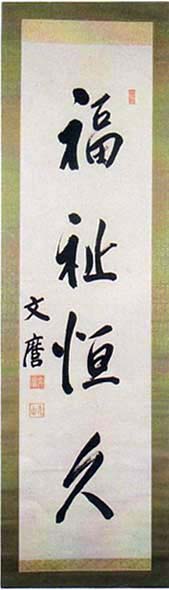 福祉恒久
文麿